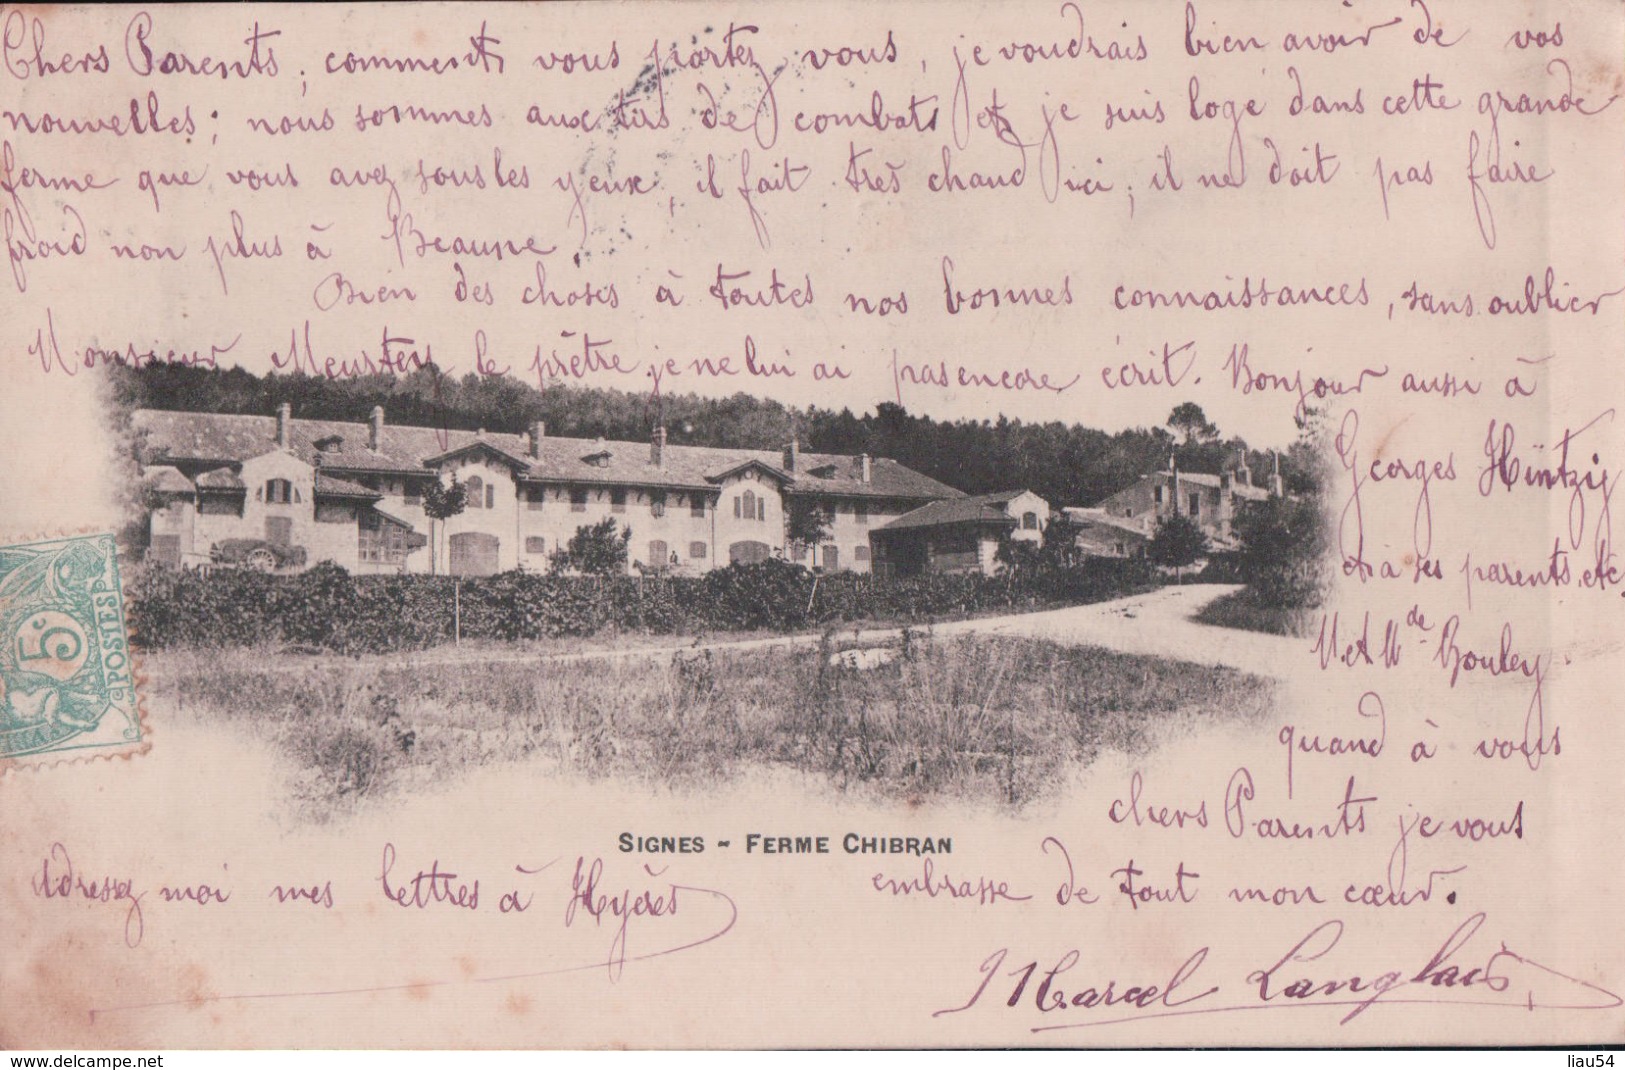 Chers Parents, comment vous portez vous, je voudrais bien avoir de vos
nouvelles; nous sommes aux tirs de combats et je suis logé dans cette grande
ferme que vous avez sous les yeux, il fait très chaud ici, il ne doit pas faire
froid non plus à Beaune.
Bien des choses à toutes nos bonnes connaissances, sans oublier
Monsieur le prêtre, je ne lui ai pas encore écrit. Bonjour aussi à
Georges
et à ses parents, etc
M. et Mde Bouley
quand à vous
chers Parents je vous
embrasse de tout mon cœur.
Marcel Langlais
Adressez moi mes lettres à Hyères
SIGNES - FERME CHIBRAN
5c
POSTES
www.delcampe.net
liau54